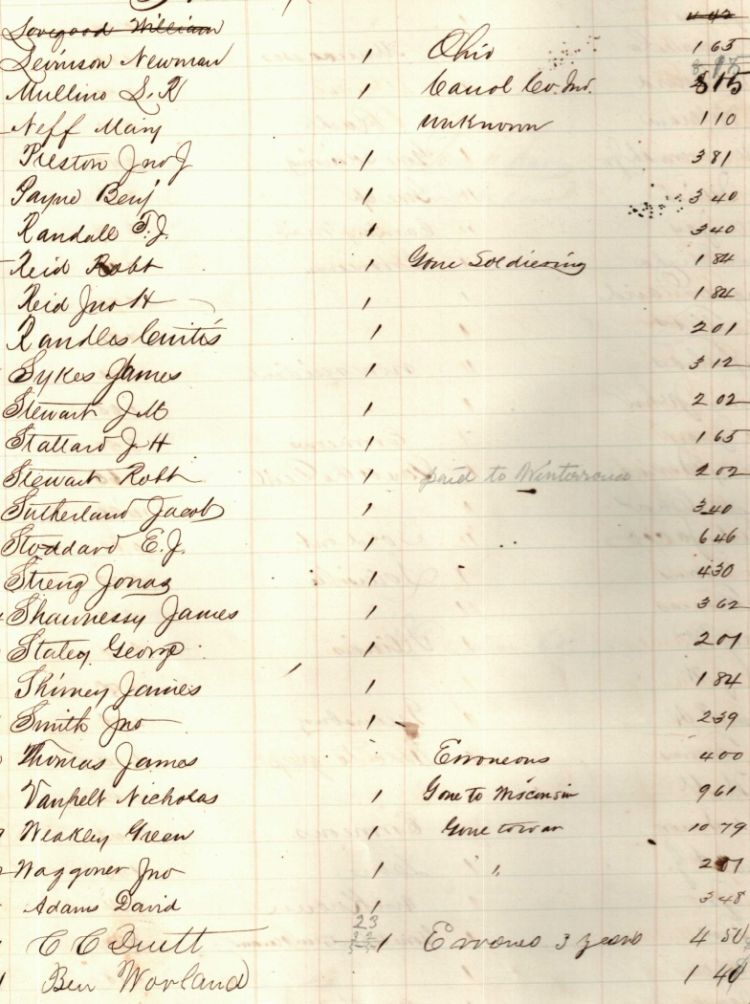 Lovegood William
Levinson Newman 1 Ohio 1 65
Mullino S. R 1 Carrol Co. Ind. 3 15
Neff Mary unknown 1 10
Preston Jno J 1 3 81
Payne Benj 1 3 40
Randall T. J. 1 3 40
Reid Robt 1 Gone Soldiering 1 84
Reid Jno H 1 1 84
Randles Curtis 1 2 01
Sykes James 1 3 12
Stewart J. M 1 2 02
Stallard J. H 1 1 65
Stewart Robt 1 paid to 2 02
Sutherland Jacob 1 3 40
Stoddard E. J. 1 6 46
Streng Jonas 1 4 30
Shaunessy James 1 3 62
Staley George 1 2 01
Skinney James 1 1 84
Smith Jno 1 2 39
Thomas James 1 Erroneous 4 00
Vanpelt Nicholas 1 Gone to Wisconsin 9 61
Weakley Green 1 Gone to war 10 79
Waggoner Jno 1 " 2 01
Adams David 1 3 48
23
C C Duett 1 3 years 4 50
Ben Worland 1 40